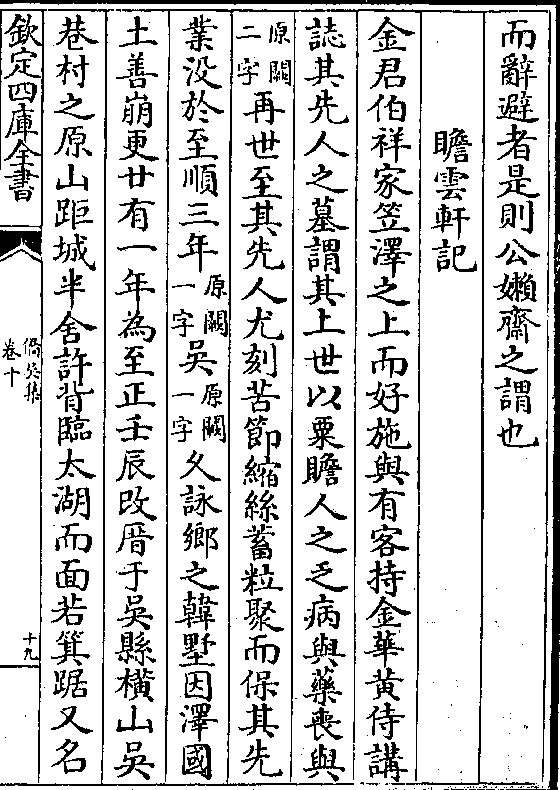 而辭避者是則公嬾齋之謂也
瞻雲軒記
金君伯祥家笠澤之上而好施與有客持金華黃侍講
誌其先人之墓謂其上世以粟贍人之乏病與藥喪與
原闕二字再世至其先人尤刻苦節縮絲蓄粒聚而保其先
業没於至順三年原闕一字吳原闕一字久詠鄉之韓墅因澤國
土善崩更廿有一年為至正壬辰改厝于吳縣橫山吳
巷村之原山距城半舍許背臨太湖而面若箕踞又名
欽定四庫全書
僑吳集
卷十
十九